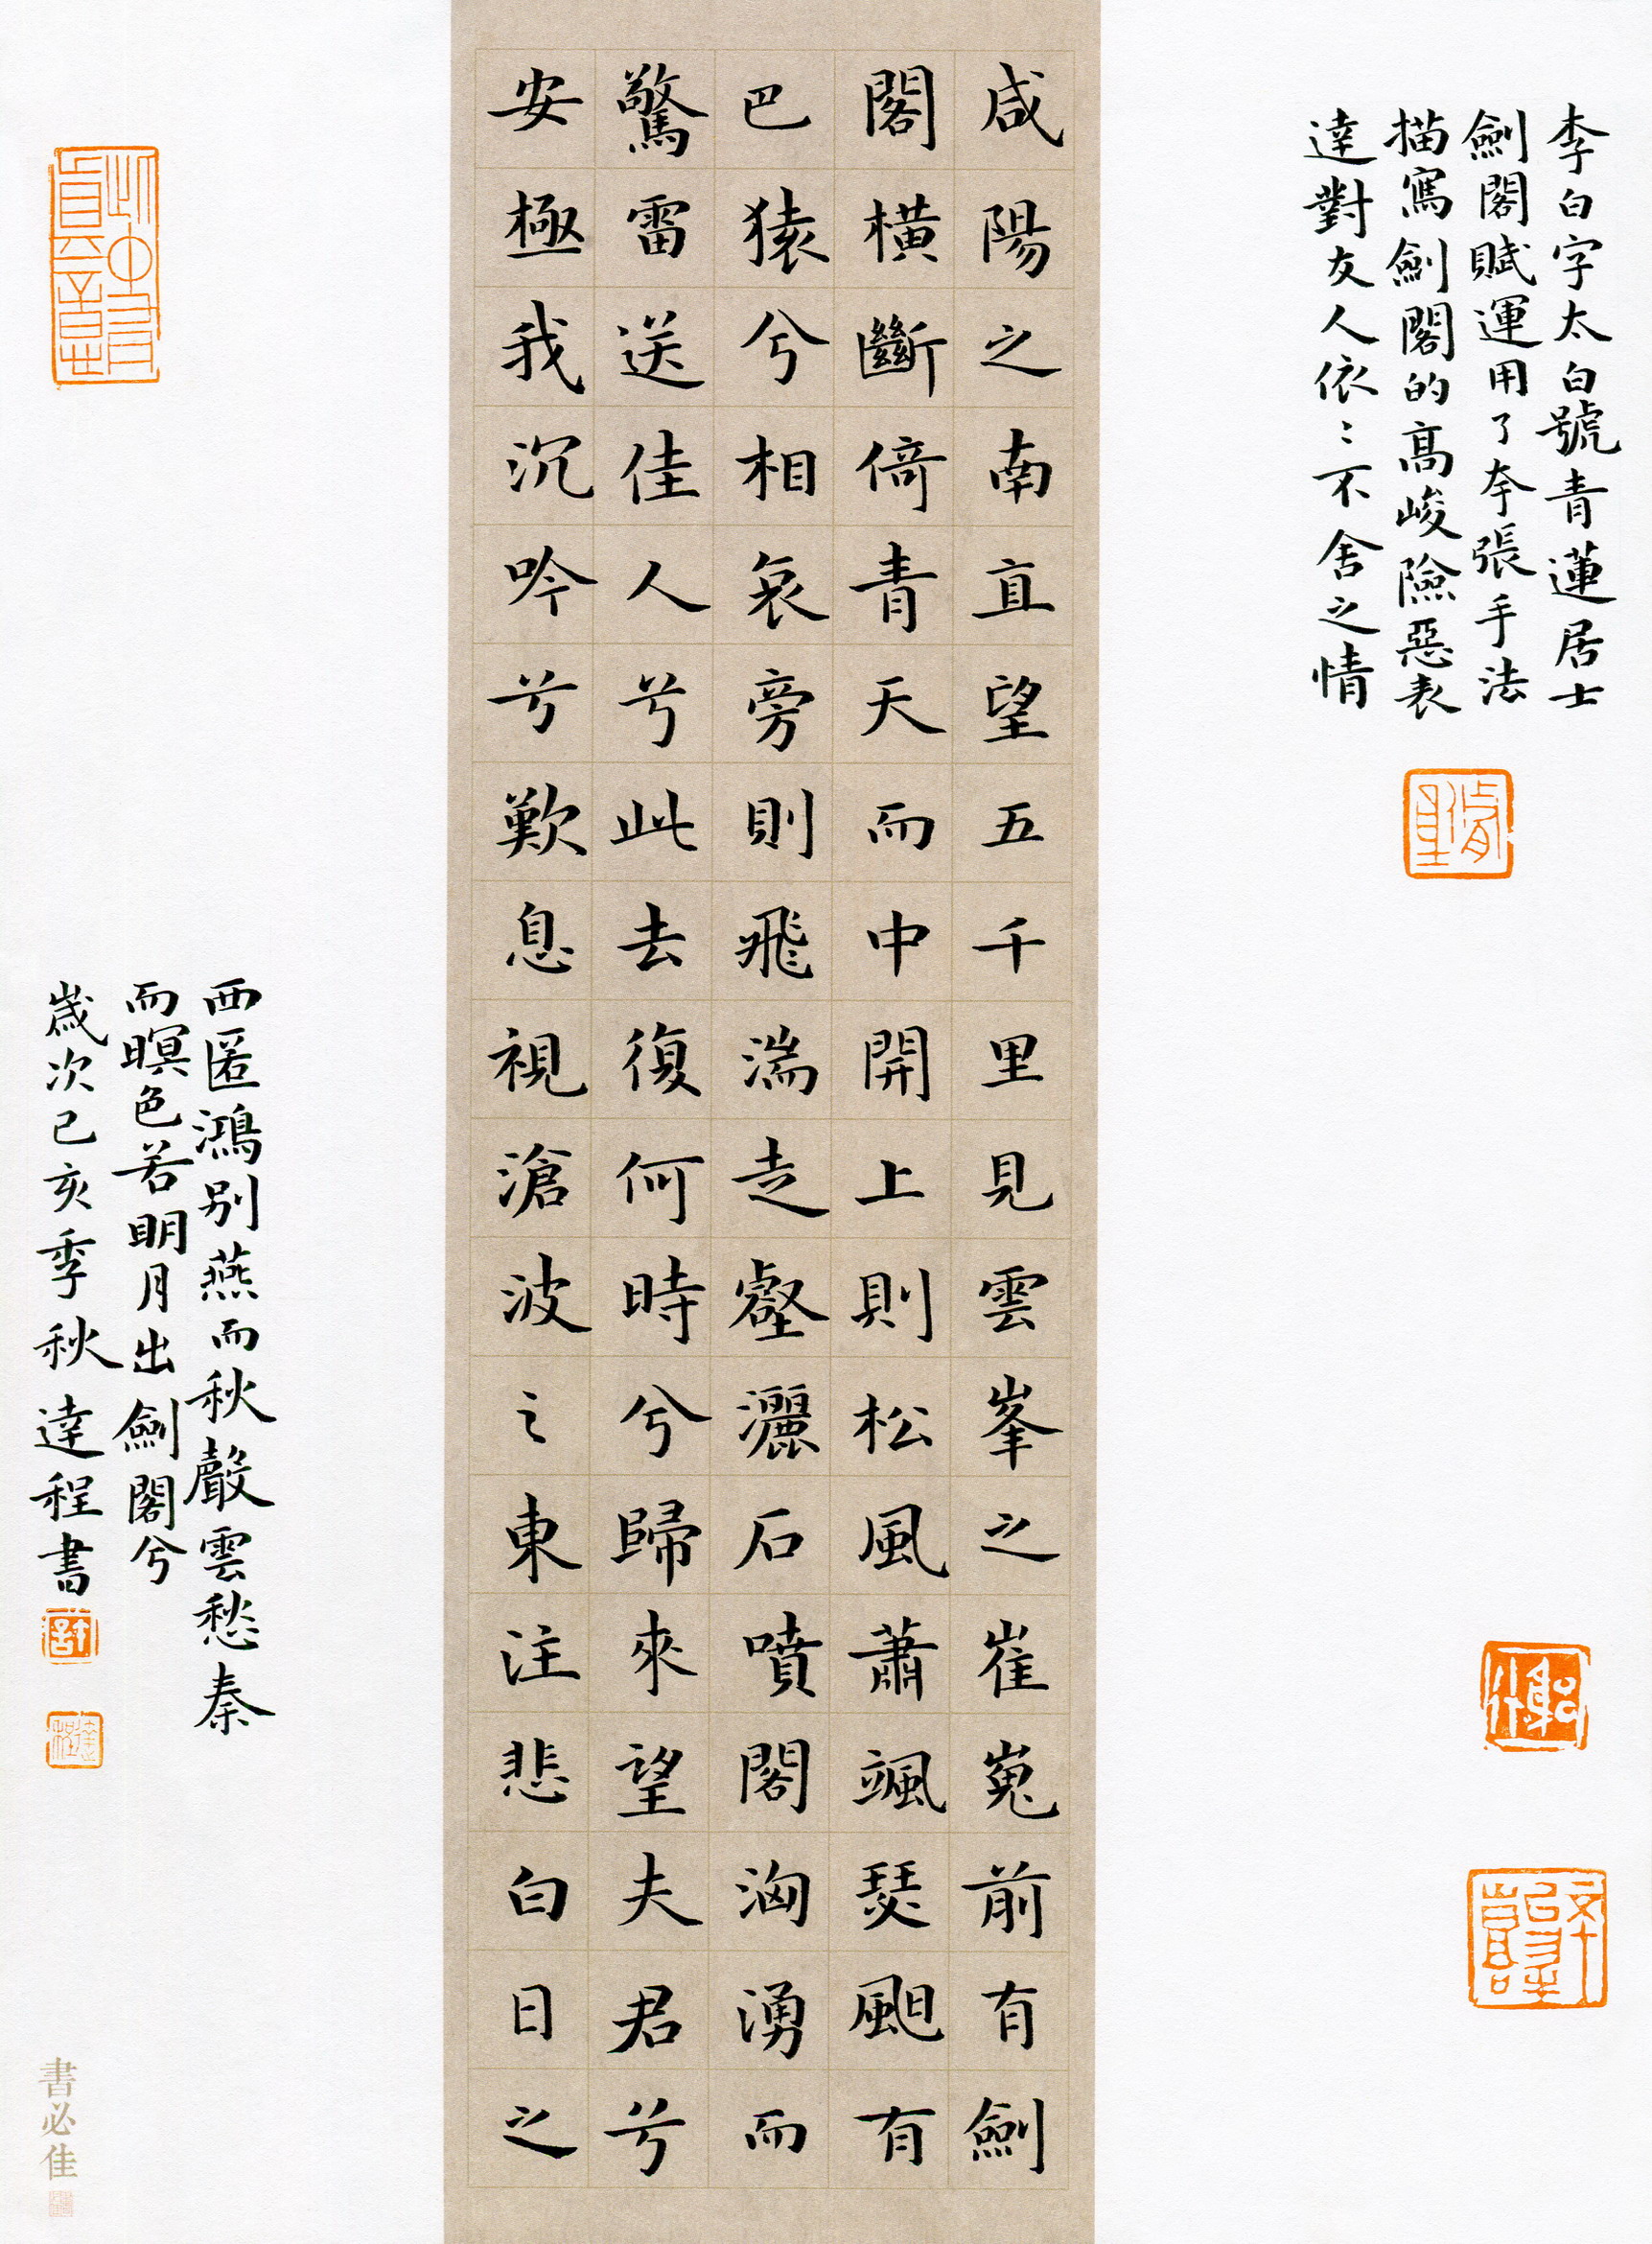 李白字太白號青蓮居士
劍閣賦運用了夸張手法
描寫劍閣的高峻險惡表
達對友人依：不舍之情
咸陽之南直望五千里見雲峯之崔嵬前有劍
閣橫斷倚青天而中開上則松風蕭颯瑟颶有
巴猿兮相哀旁則飛湍走壑灑石噴閣洶湧而
驚雷送佳人兮此去復何時兮歸來望夫君兮
安極我沉吟兮歎息視滄波之東注悲白日之
西匿鴻別燕而秋聲雲愁秦
而暝色若明月出劍閣兮
歲次己亥季秋達程書
書必佳